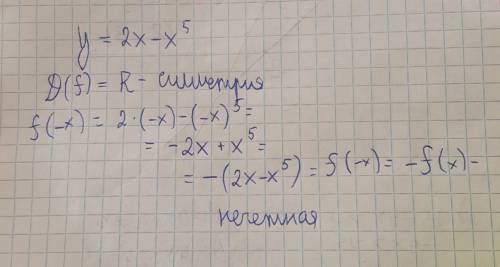 y = 2x - x⁵
D(f) = R - симметрия
f(-x) = 2·(-x) - (-x)⁵ =
= -2x + x⁵ =
= -(2x - x⁵) = f(-x) = -f(x) -
нечетная